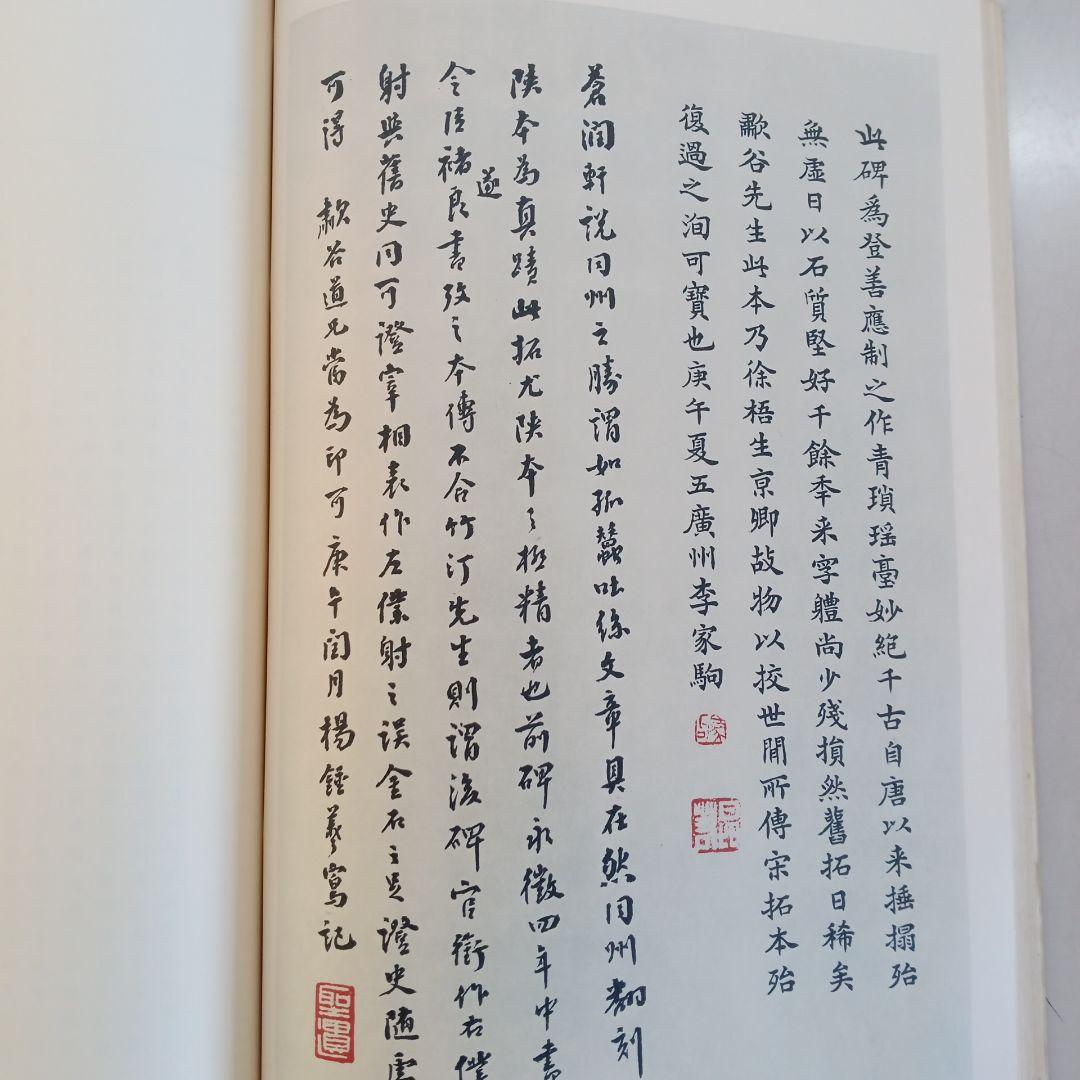 此碑爲登善應制之作青瑣瑶臺妙絶千古自唐以来捶搨殆
無虛日以石質堅好千餘秊来字體尚少殘損然舊拓日稀矣
歗谷先生此本乃徐梧生京卿故物以挍世間所傳宋拓本殆
復過之洵可寶也庚午夏五廣州李家駒
蒼潤軒説同州之勝謂如孤蠶吐絲文章具在然同州翻刻
陝本為真蹟此拓尤陝本之極精者也前碑永徽四年中書
令臣褚遂良書攷之本傳不合竹汀先生則謂後碑官銜作右僕
射與舊史同可證宰相表作左僕射之誤金石之足證史隨處
可得 歗谷道兄當為印可庚午閏月楊鍾羲寫記
聖遺